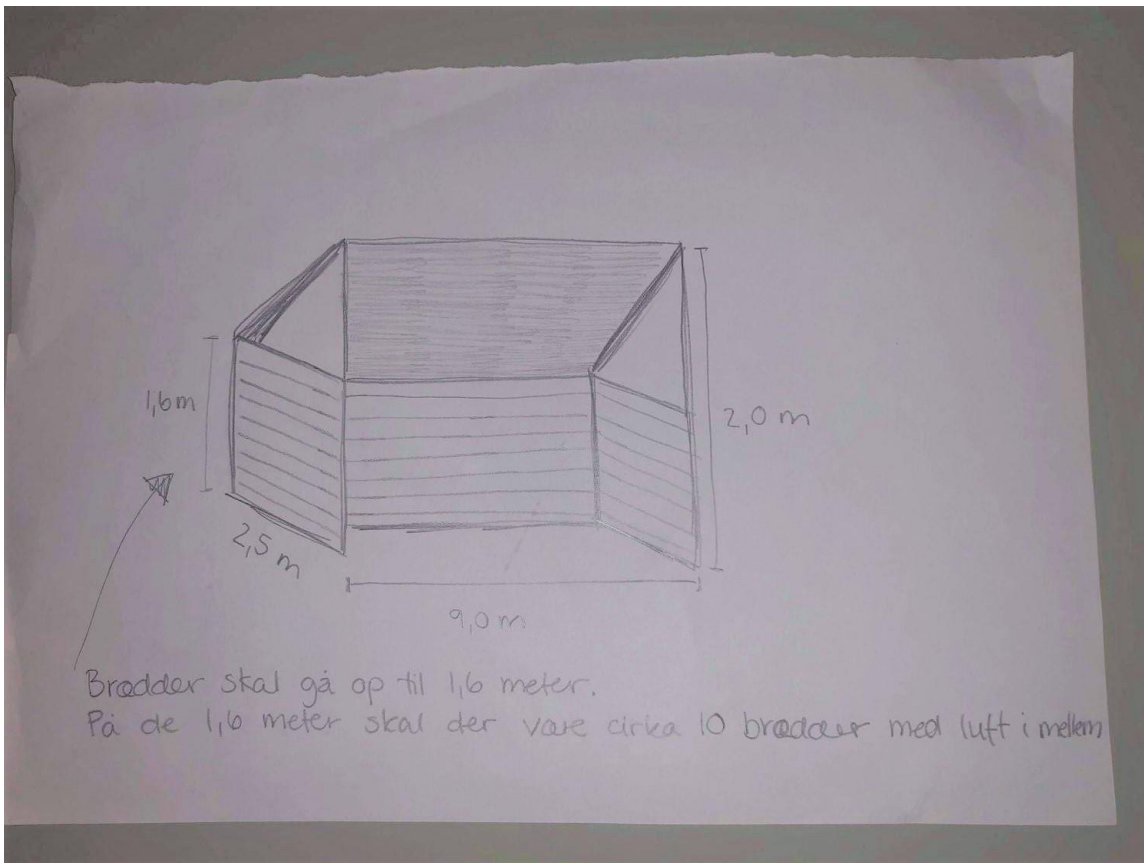 1,6m
2,0 m
2,5 m
9,0 m
Brædder skal gå op til 1,6 meter.
På de 1,6 meter skal der være cirka 10 brædder med luft i mellem